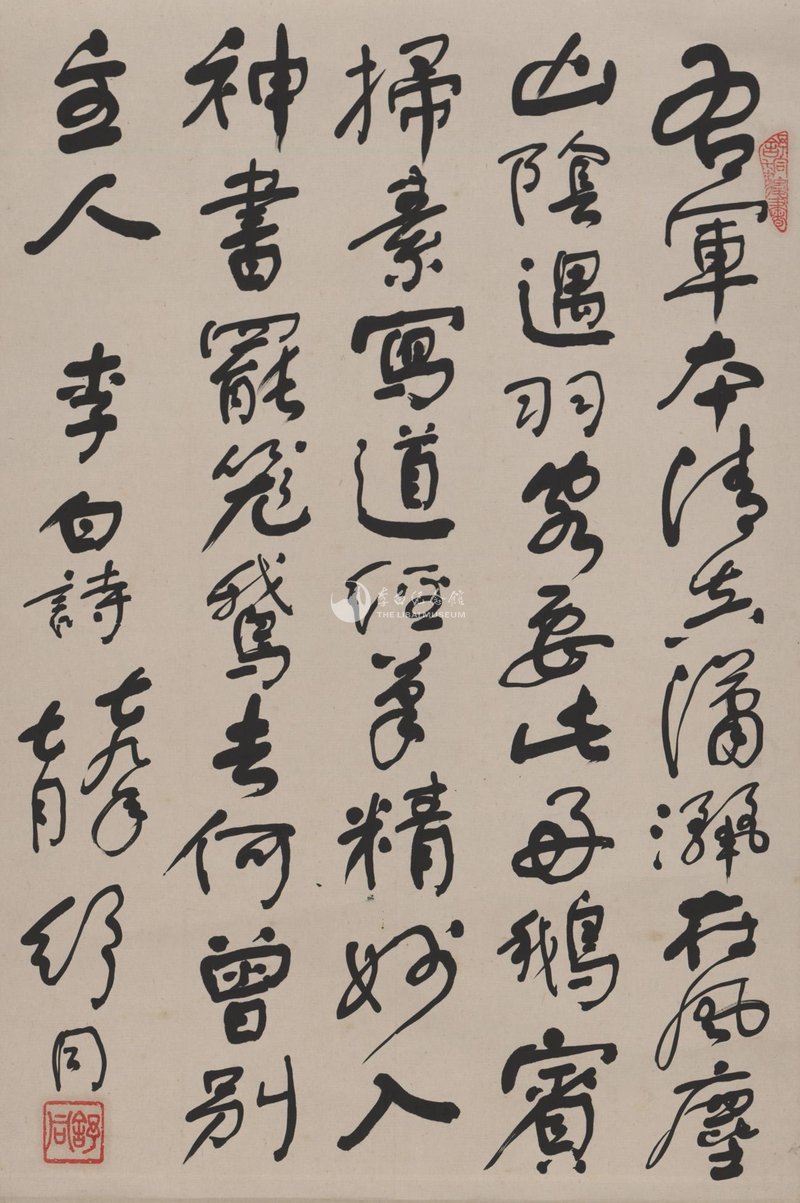 右軍本清真瀟灑在風塵
山陰遇羽客要此好鵝賓
掃素寫道經筆精妙入
神書罷籠鵝去何曾別
主人 李白詩 七九年
七月 舒同
舒同
李白纪念馆
THE LIBAI MUSEUM